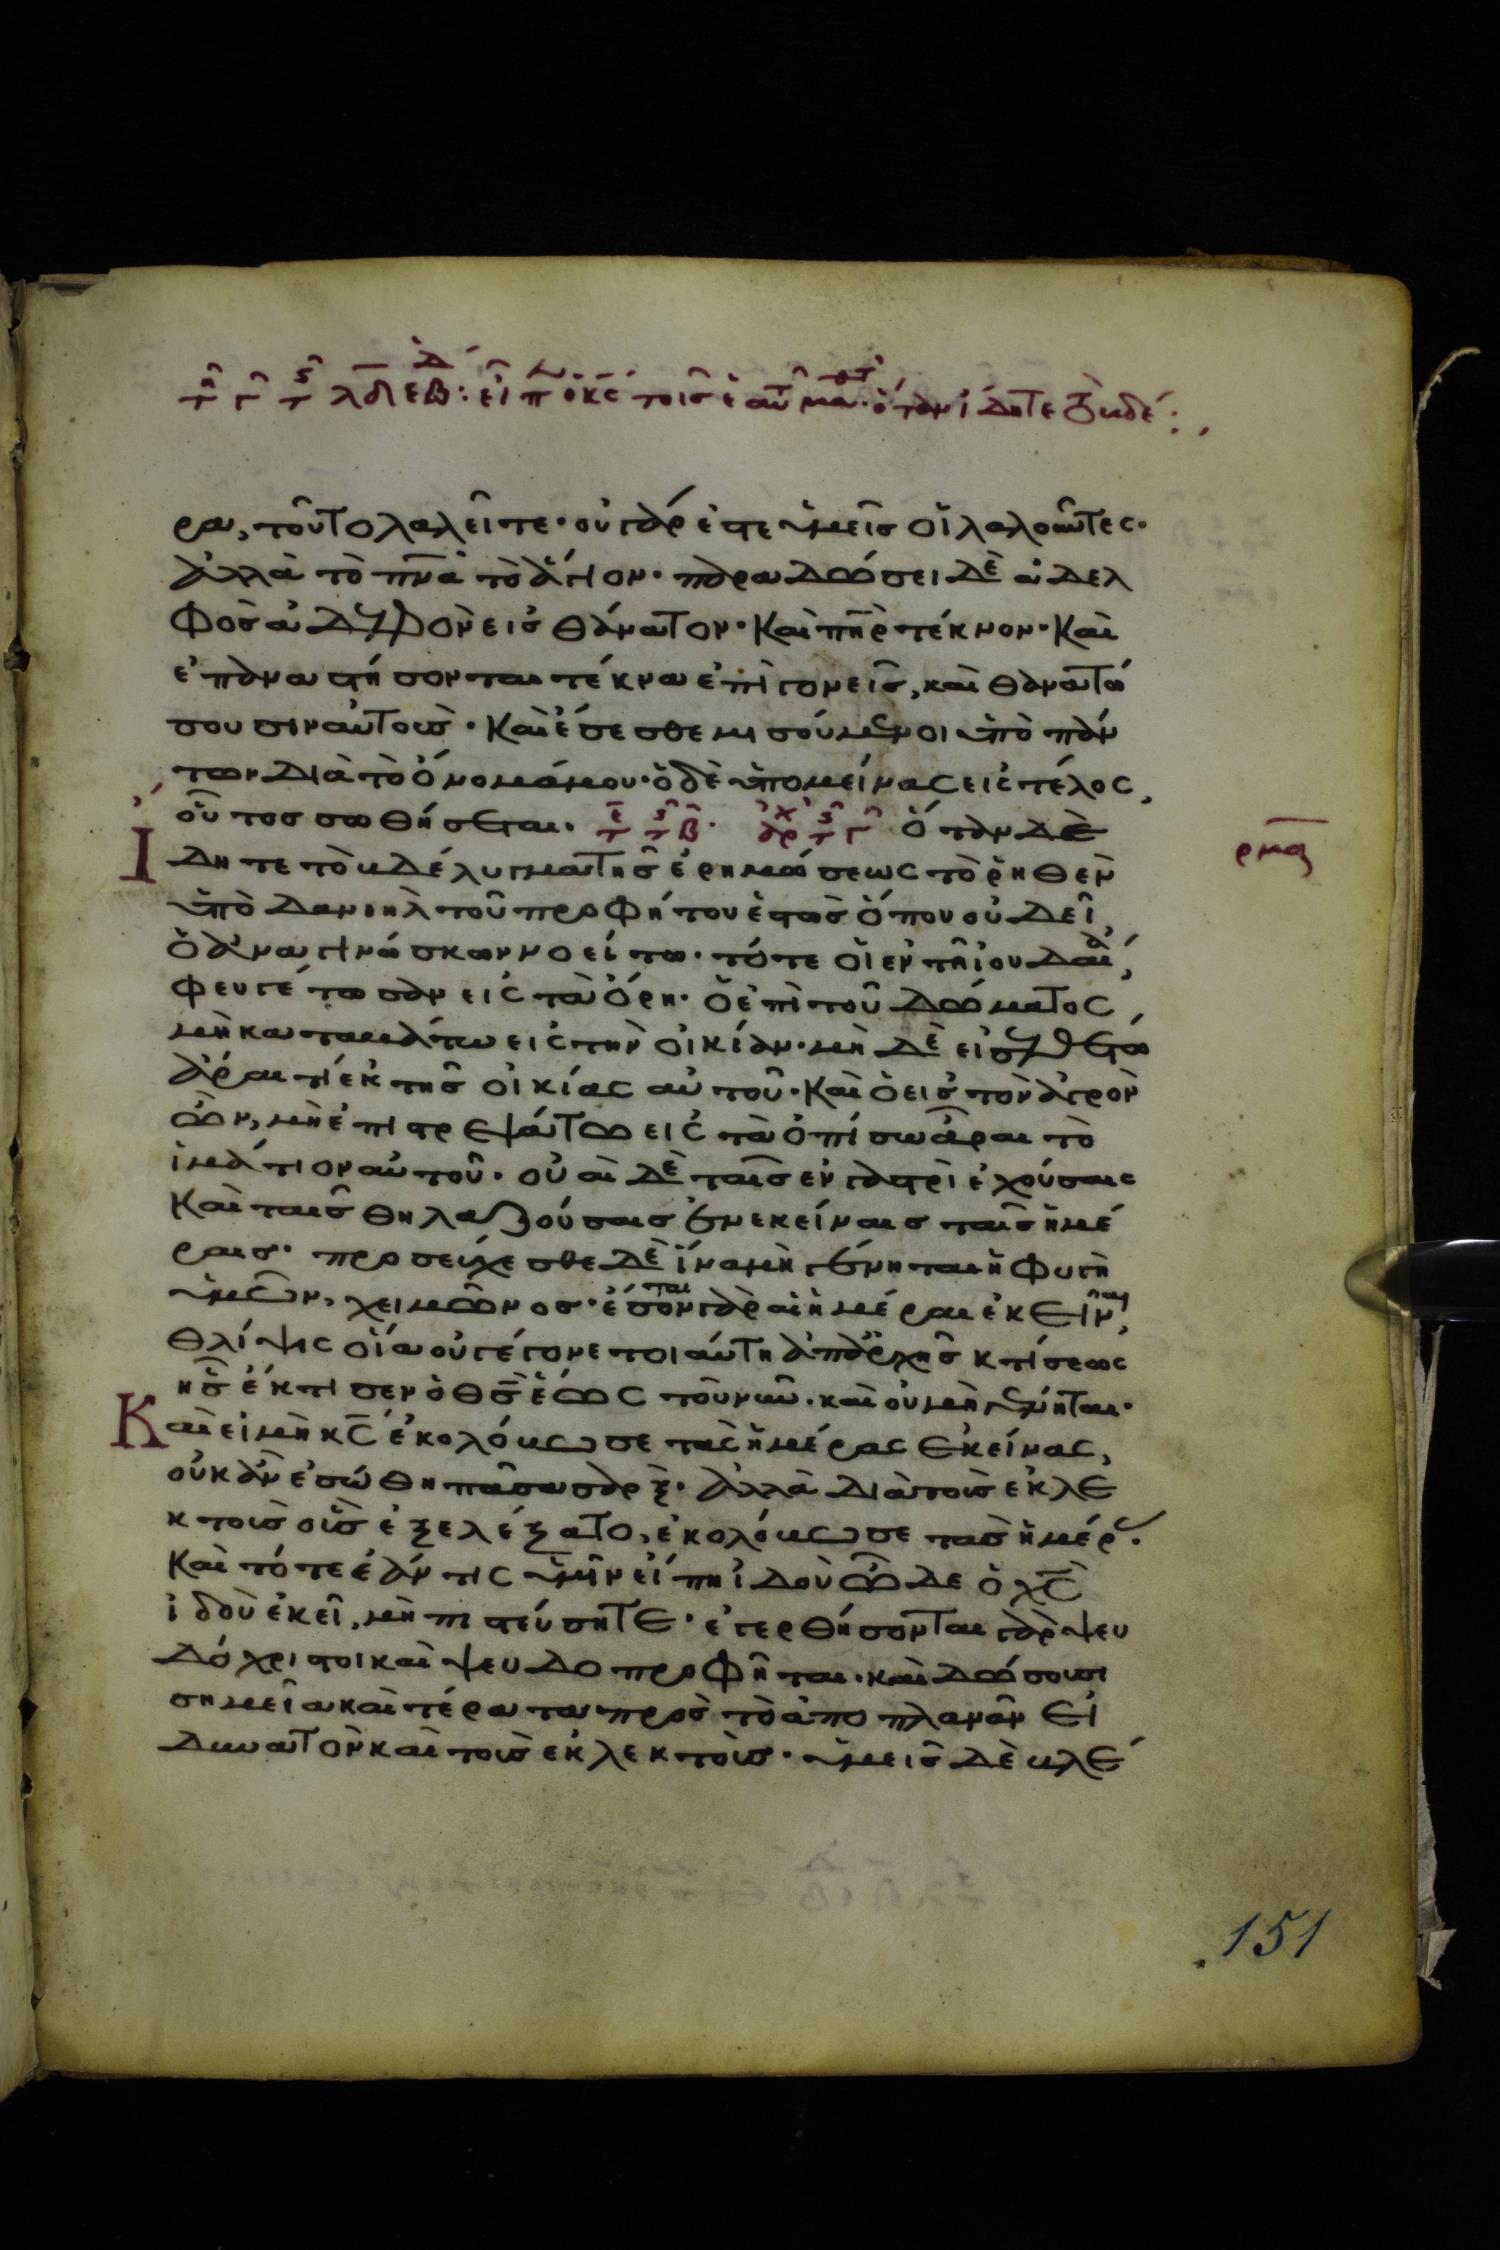 τῇ γ τῆς ϛ λδ εβδ: εἶπ ὁ κς τοῖς ἑαυτ μαθ· ὅταν ἴδητε τὸ βδέ:
ρα, τοῦτο λαλεῖτε· οὐ γάρ ἐστε ὑμεῖς οἱ λαλοῦντες·
ἀλλὰ τὸ πνα τὸ ἅγιον· παραδώσει δὲ ἀδελ
φὸς ἀδελφὸν εἰς θάνατον· καὶ πηρ τέκνον· καὶ
ἐπαναστήσονται τέκνα ἐπὶ γονεῖς, καὶ θανατώ
σουσιν αὐτούς· καὶ ἔσεσθε μισούμενοι ὑπὸ πάν
των διὰ τὸ ὄνομά μου· ὁ δὲ ὑπομείνας εἰς τέλος,
οὗτος σωθήσεται· τ ϛ β· ἀρχ τ ϛ γ Ὅταν δὲ
Ἴδητε τὸ βδέλυγμα τῆς ἐρημώσεως τὸ ῥηθὲν
ὑπὸ Δανιὴλ τοῦ προφήτου ἑστὼς ὅπου οὐ δεῖ,
ὁ ἀναγινώσκων νοείτω· τότε οἱ ἐν τῇ ἰουδαία,
φευγέτωσαν εἰς τὰ ὄρη· ὁ ἐπὶ τοῦ δώματος,
μὴ καταβάτω εἰς τὴν οἰκίαν· μὴ δὲ εἰσελθέτω
ἆραι τί ἐκ τῆς οἰκίας αὐτοῦ· καὶ ὁ εἰς τὸν ἀγρὸν
ὤν, μὴ ἐπιστρεψάτω εἰς τὰ ὀπίσω ἆραι τὸ
ἱμάτιον αὐτοῦ· οὐαὶ δὲ ταῖς ἐν γαστρὶ ἐχούσαις
καὶ ταῖς θηλαζούσαις ἐν ἐκείναις ταῖς ἡμέ
ραις· προσεύχεσθε δὲ ἵνα μὴ γένηται ἡ φυγὴ
ὑμῶν, χειμῶνος· ἔσονται γὰρ αἱ ἡμέραι ἐκεῖναι,
θλίψις οἵα οὐ γέγονε τοιαύτη ἀπαρχῆς κτίσεως
ἧς ἔκτισεν ὁ θς ἕως τοῦ νῦν· καὶ οὐ μὴ γένηται·
Καὶ εἰ μὴ κς ἐκολόβωσε τὰς ἡμέρας ἐκείνας,
οὐκ ἂν ἐσώθη πᾶσα σάρξ· ἀλλὰ διὰ τοὺς ἐκλε
κτοὺς οὓς ἐξελέξατο, ἐκολόβωσε τὰς ἡμέρ·
καὶ τότε ἐάν τις ὑμῖν εἴπῃ ἰδοὺ ὧδε ὁ χς
ἰδοὺ ἐκεῖ, μὴ πιστεύσητε· ἐγερθήσονται γὰρ ψευ
δόχριστοι καὶ ψευδοπροφῆται· καὶ δώσουσι
σημεῖα καὶ τέρατα πρὸς τὸ ἀποπλανᾶν εἰ
δυνατὸν καὶ τοὺς ἐκλεκτούς· ὑμεῖς δὲ βλέ
151